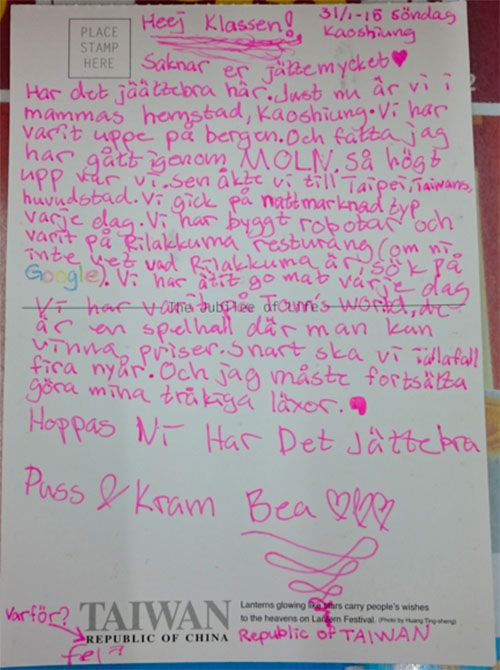 PLACE
STAMP
HERE
Heej Klassen!
31/1-15 Söndag
Kaoshiung
Saknar er jättemycket♥
Har det jäättebra här. Just nu är vi i
mammas hemstad, Kaoshiung. Vi har
varit uppe på bergen. Och fatta jag
har gått igenom MOLN. Så högt
upp var vi. Sen åkte vi till Taipei, Taiwans,
huvudstad. Vi gick på nattmarknad typ
varje dag. Vi har byggt robotar och
varit på Rilakkuma resturang (om ni
inte vet vad Rilakkuma är, sök på
Google). Vi har ätit go mat varje dag
Vi har varit på Tom's world, de
The Jubilee of Life
är en spelhall där man kan
vinna priser. Snart ska vi iallafall
fira nyår. Och jag måste fortsätta
göra mina tråkiga läxor. ♥
Hoppas Ni Har Det Jättebra
Puss & Kram Bea ♡♡♡
Varför?
TAIWAN
REPUBLIC OF CHINA
fel
Lanterns glowing like stars carry people's wishes
to the heavens on Lantern Festival. (Photo by Huang Ting-sheng)
Republic of TAIWAN